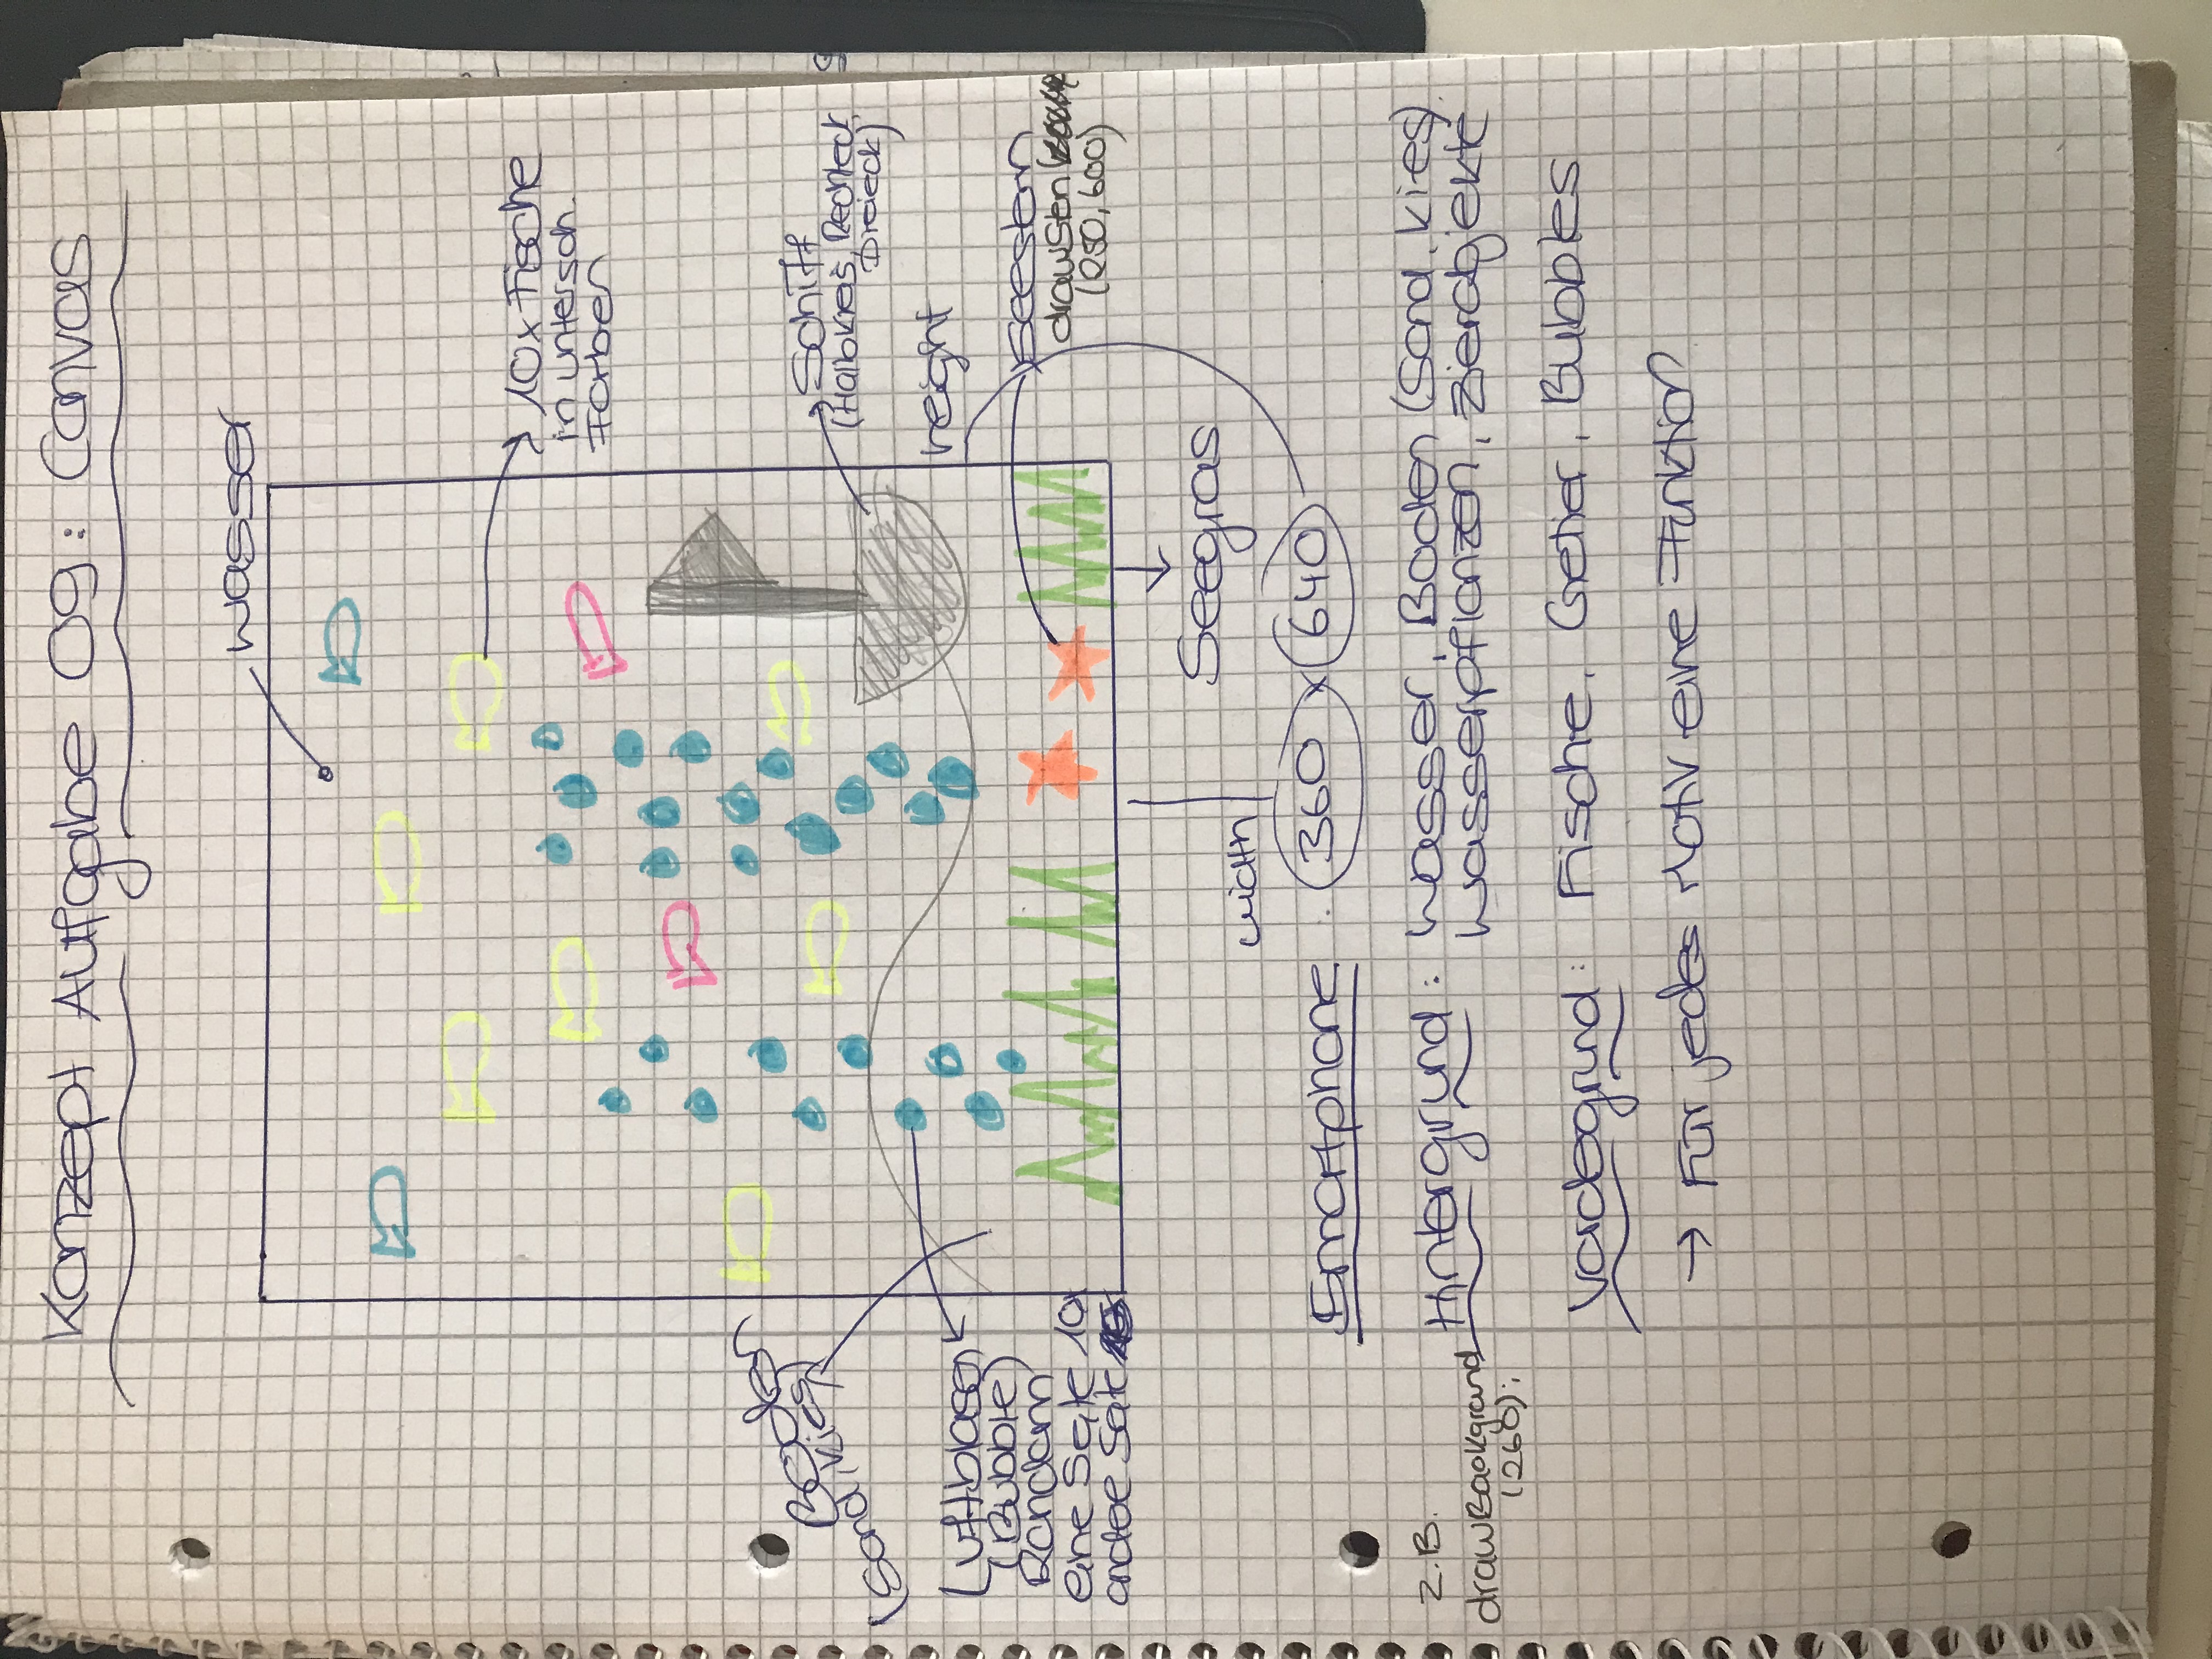 Konzept Aufgabe 09: Canvas
Wasser
10x Fische
in untersch.
Farben
Boden
(Sand, Kies)
Schiff
(Halbkreis, Rechteck,
Dreieck)
height
Luftblasen
(Bubble)
Random
eine Seite 10
andere Seite
Seestern
drawStern
(250, 600)
Seegras
width
Smartphone 360 x 640
z.B.
drawBackground
(260);
Hintergrund: Wasser, Boden (Sand, Kies)
Wasserpflanzen, Zierobjekte
Vordegrund: Fische, Getier, Bubbles
→ Für jedes Motiv eine Funktion